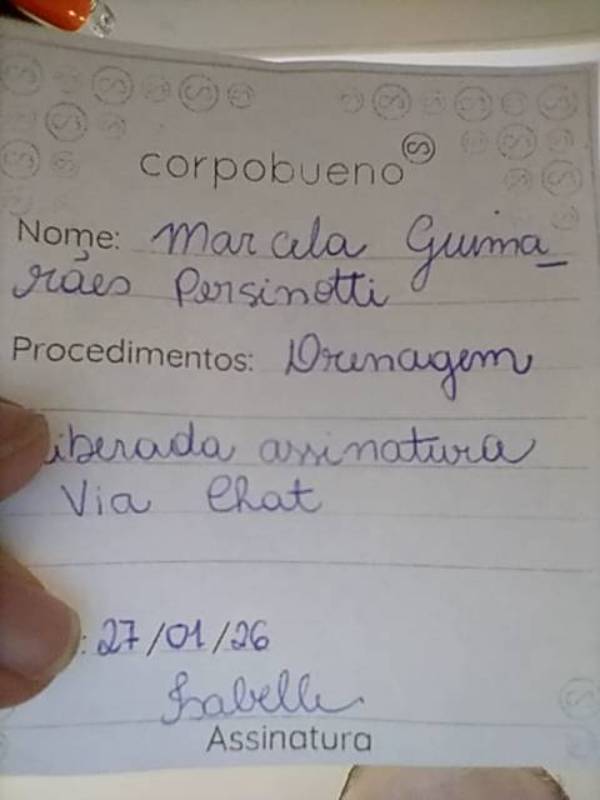 corpobueno
Nome: Marcela Guima_
rães Persinotti
Procedimentos: Drenagem
liberada assinatura
Via Chat
: 27/01/26
Isabelle
Assinatura